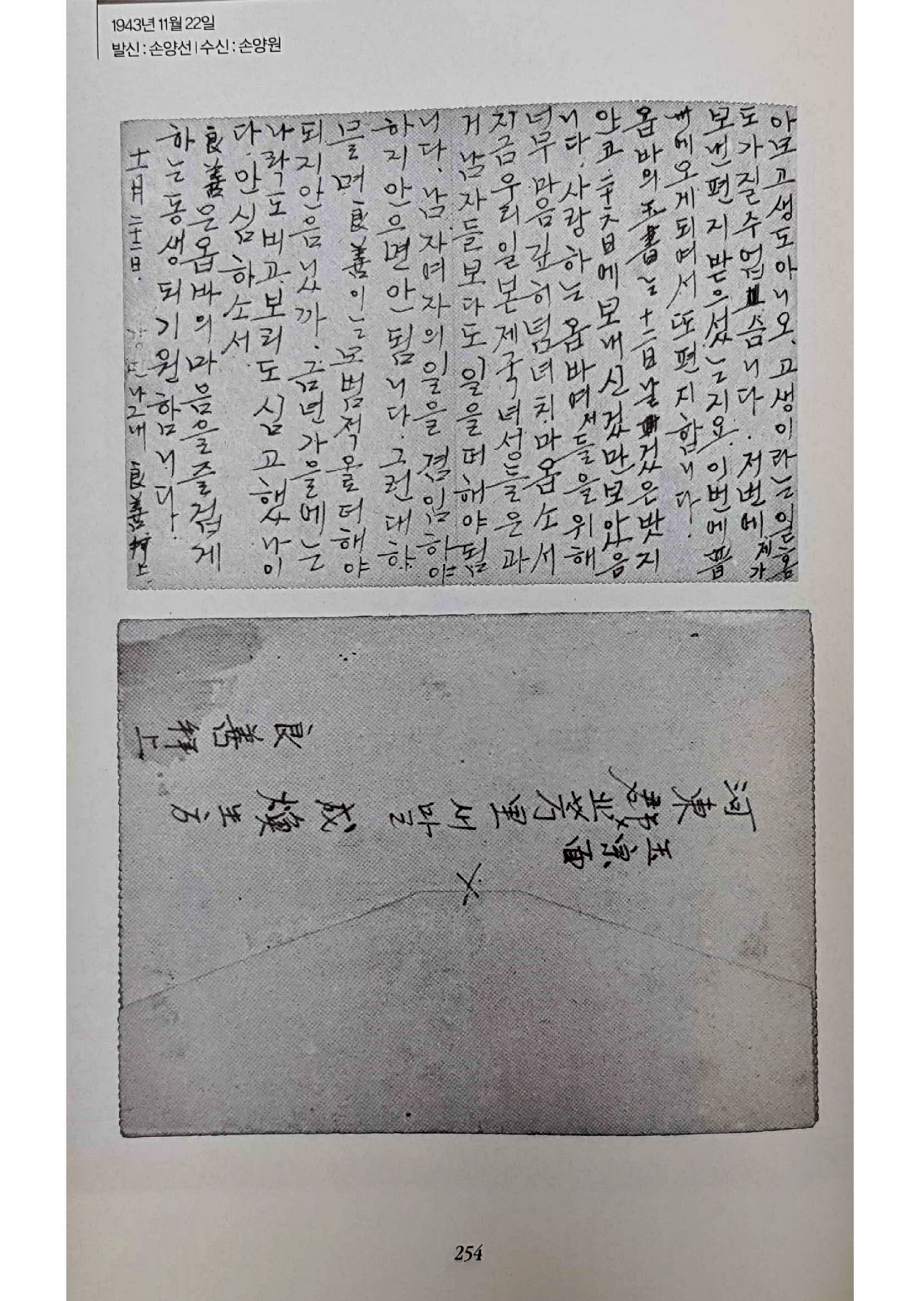 1943년 11월 22일
발신 : 손양선 | 수신 : 손양원
아모 고생도 아니오. 고생이라는 일홈
도 가질 수 업슴니다. 저번에 제가
보낸 편지 받으섰는지요. 이번에 普
州에 오게 되여서 또 편지합니다.
옵바의 玉書는 十二日날 것은 밧지
안코 보내신 것만 보았음
니다. 사랑하는 옵바여 저들을 위해
너무 마음 깊히 념녀치 마옵소서
지금 우리 일본 제국 녀성들은 과
거 남자들보다도 일을 더 해야 됨
니다. 남자 여자의 일을 겸임하야
하지 안으면 안 됨니다. 그런대 하
믈며 良善이는 모범적으로 더 해야
되지 안음닛가. 금년 가을에는
나락도 비고 보리도 심고 했나이
다. 안심하소서.
良善은 옵바의 마음을 즐겁게
하는 동생 되기 원함니다.
十一月 二十二日. 나그내 良善 拜上
河東郡 北芳里 새말 成煥生方
玉宗面
良善 拜上
254